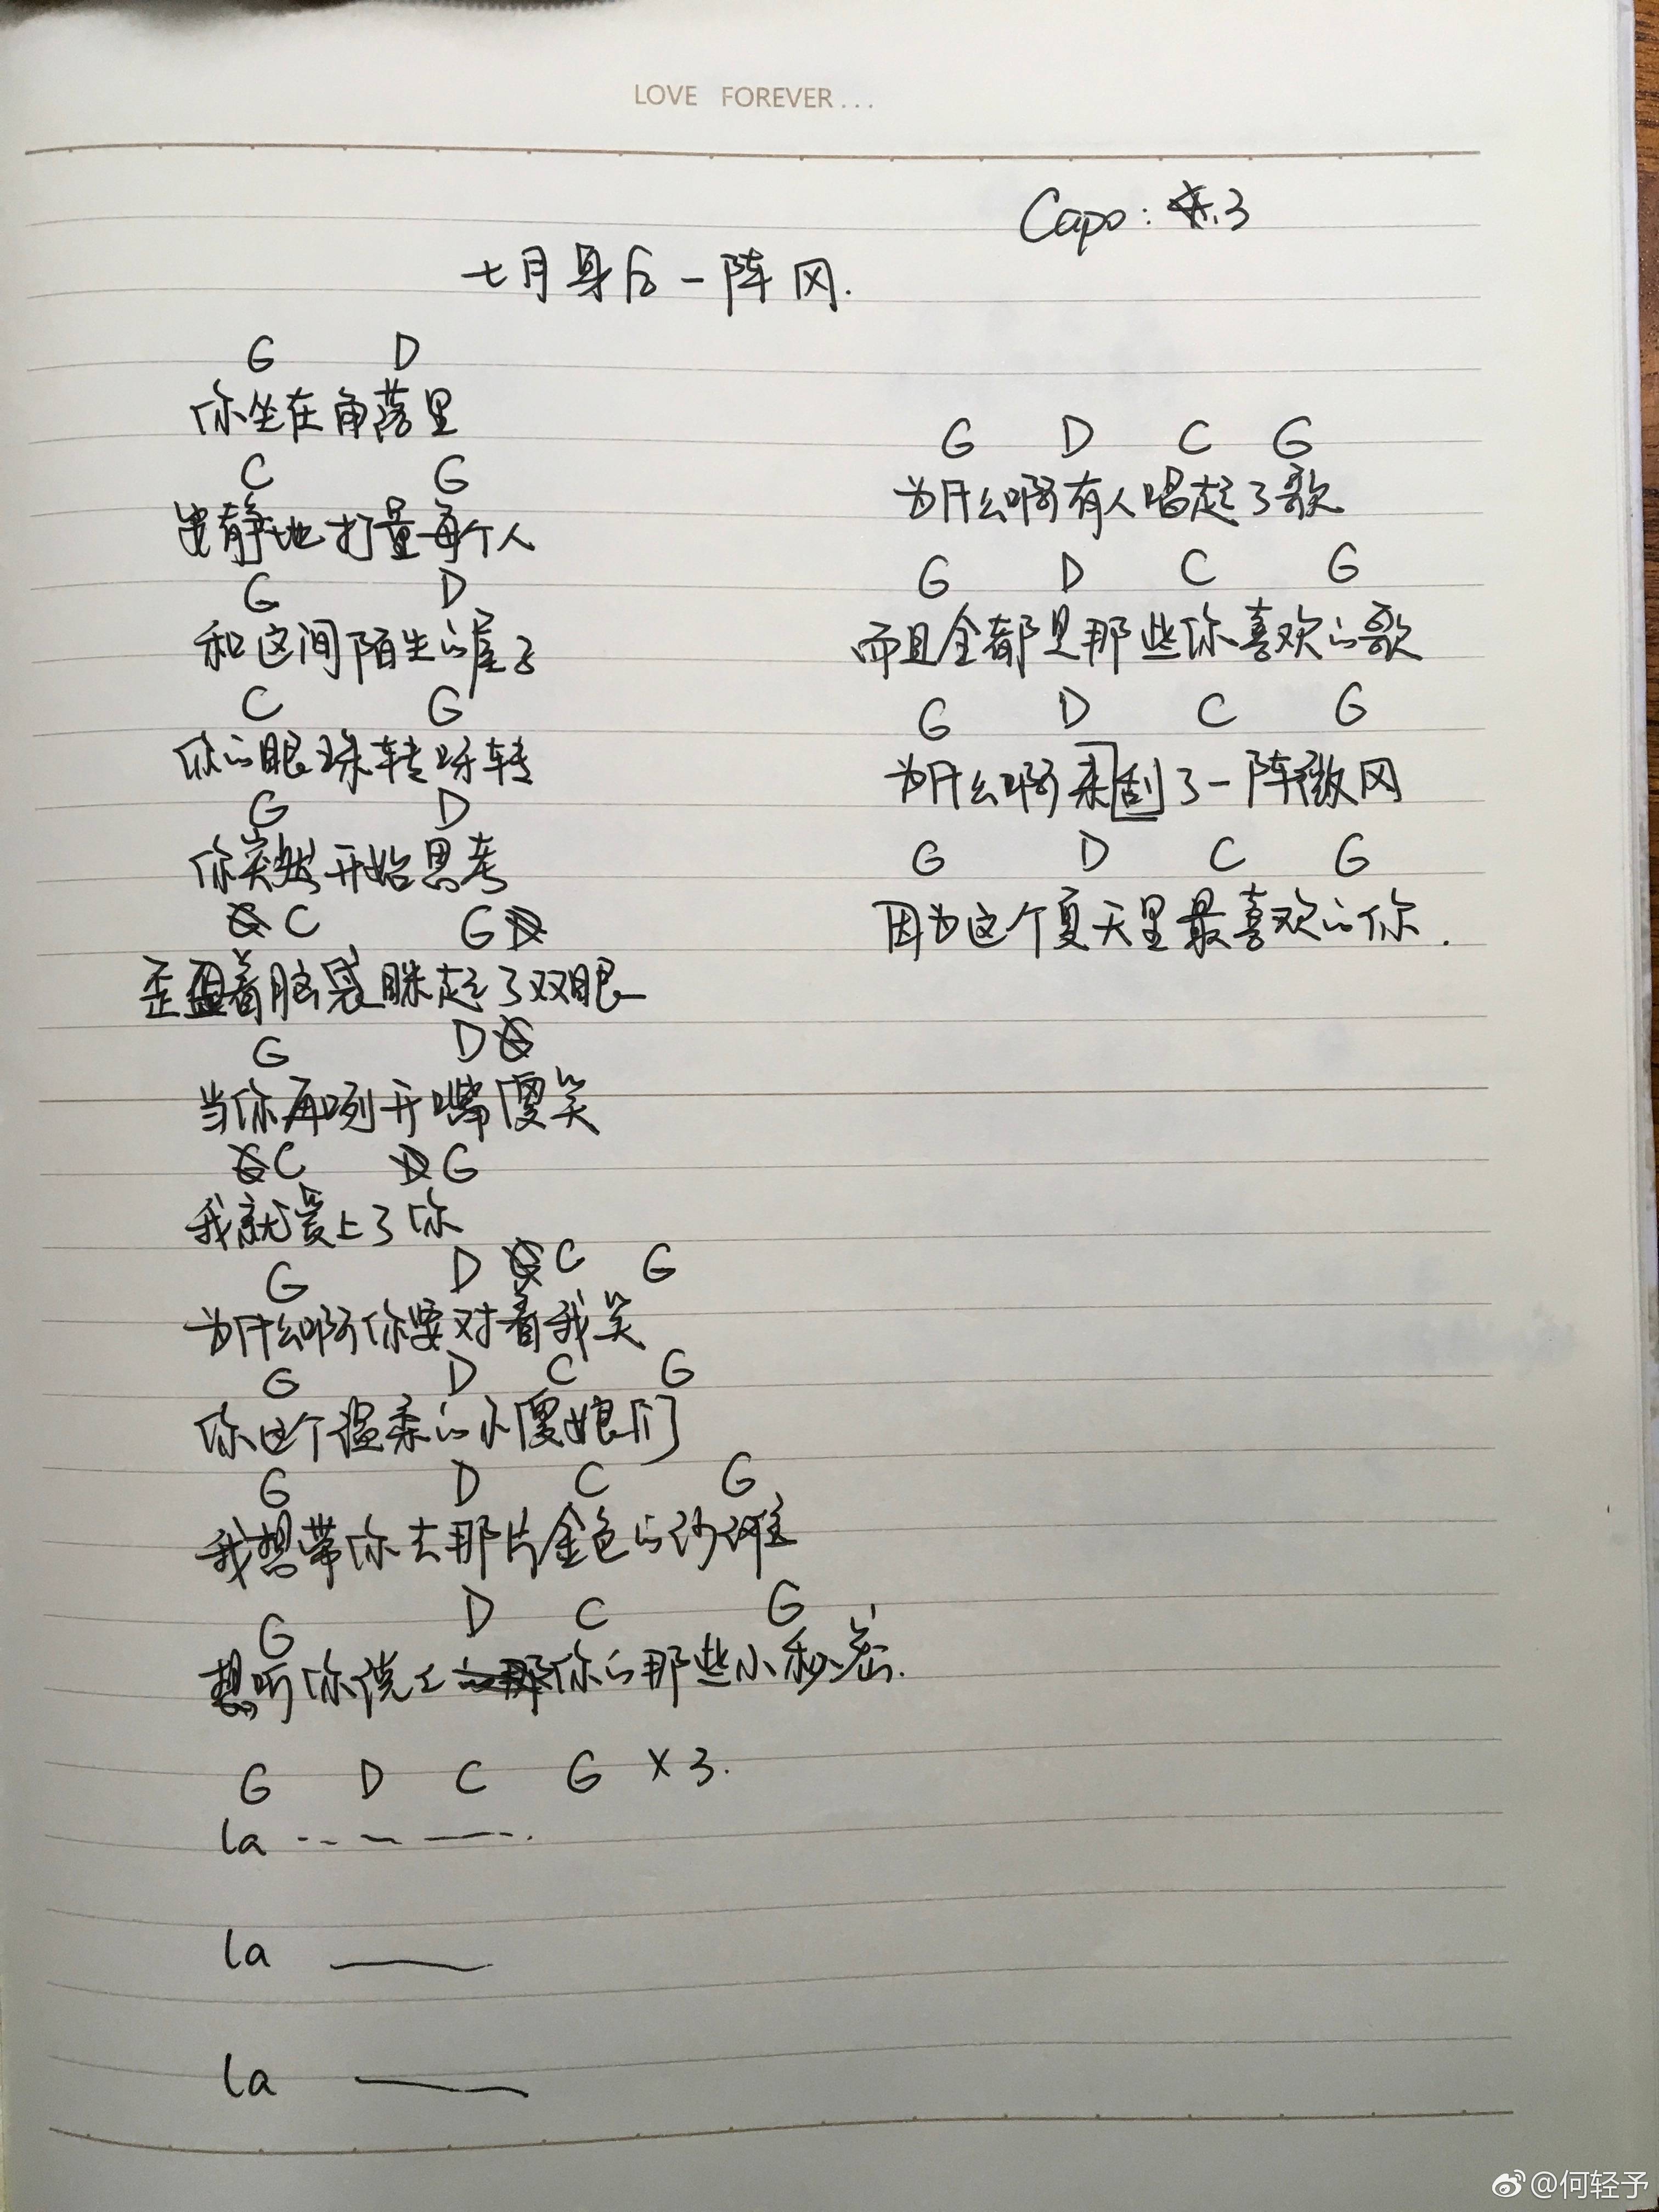 LOVE FOREVER...
Capo: 3
七月身后一阵风.
G D
你坐在角落里
C G
安静地打量每个人
G D
和这间陌生的屋子
C G
你的眼珠转呀转
G D
你突然开始思考
C G
歪着脑袋眯起了双眼
G D
当你再咧开嘴傻笑
C G
我就爱上了你
G D C G
为什么啊你要对着我笑
G D C G
你这个温柔的小傻娘们
G D C G
我想带你去那片金色的沙滩
G D C G
想听你说上你的那些小秘密.
G D C G ×3.
la
la
la
G D C G
为什么啊有人唱起了歌
G D C G
而且全都是那些你喜欢的歌
G D C G
为什么啊刮了一阵微风
G D C G
因为这个夏天里最喜欢的你.
@何轻予